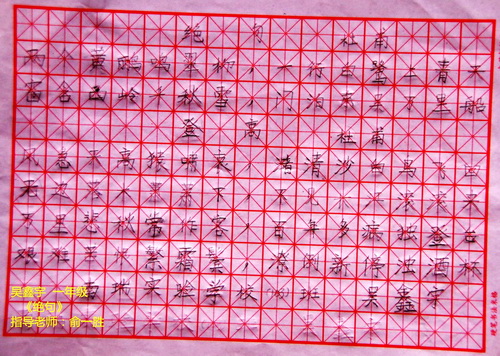 绝句 杜甫
两个黄鹂鸣翠柳,一行白鹭上青天
窗含西岭千秋雪,门泊东吴万里船
登高 杜甫
风急天高猿啸哀,渚清沙白鸟飞回
无边落木萧萧下,不 江滚滚来
万里悲秋常作客,百年多病独登台
艰难苦恨繁霜鬓,潦倒新停浊酒杯
实验学校 班 吴鑫宇
吴鑫宇 一年级
《绝句》
指导老师:俞一胜